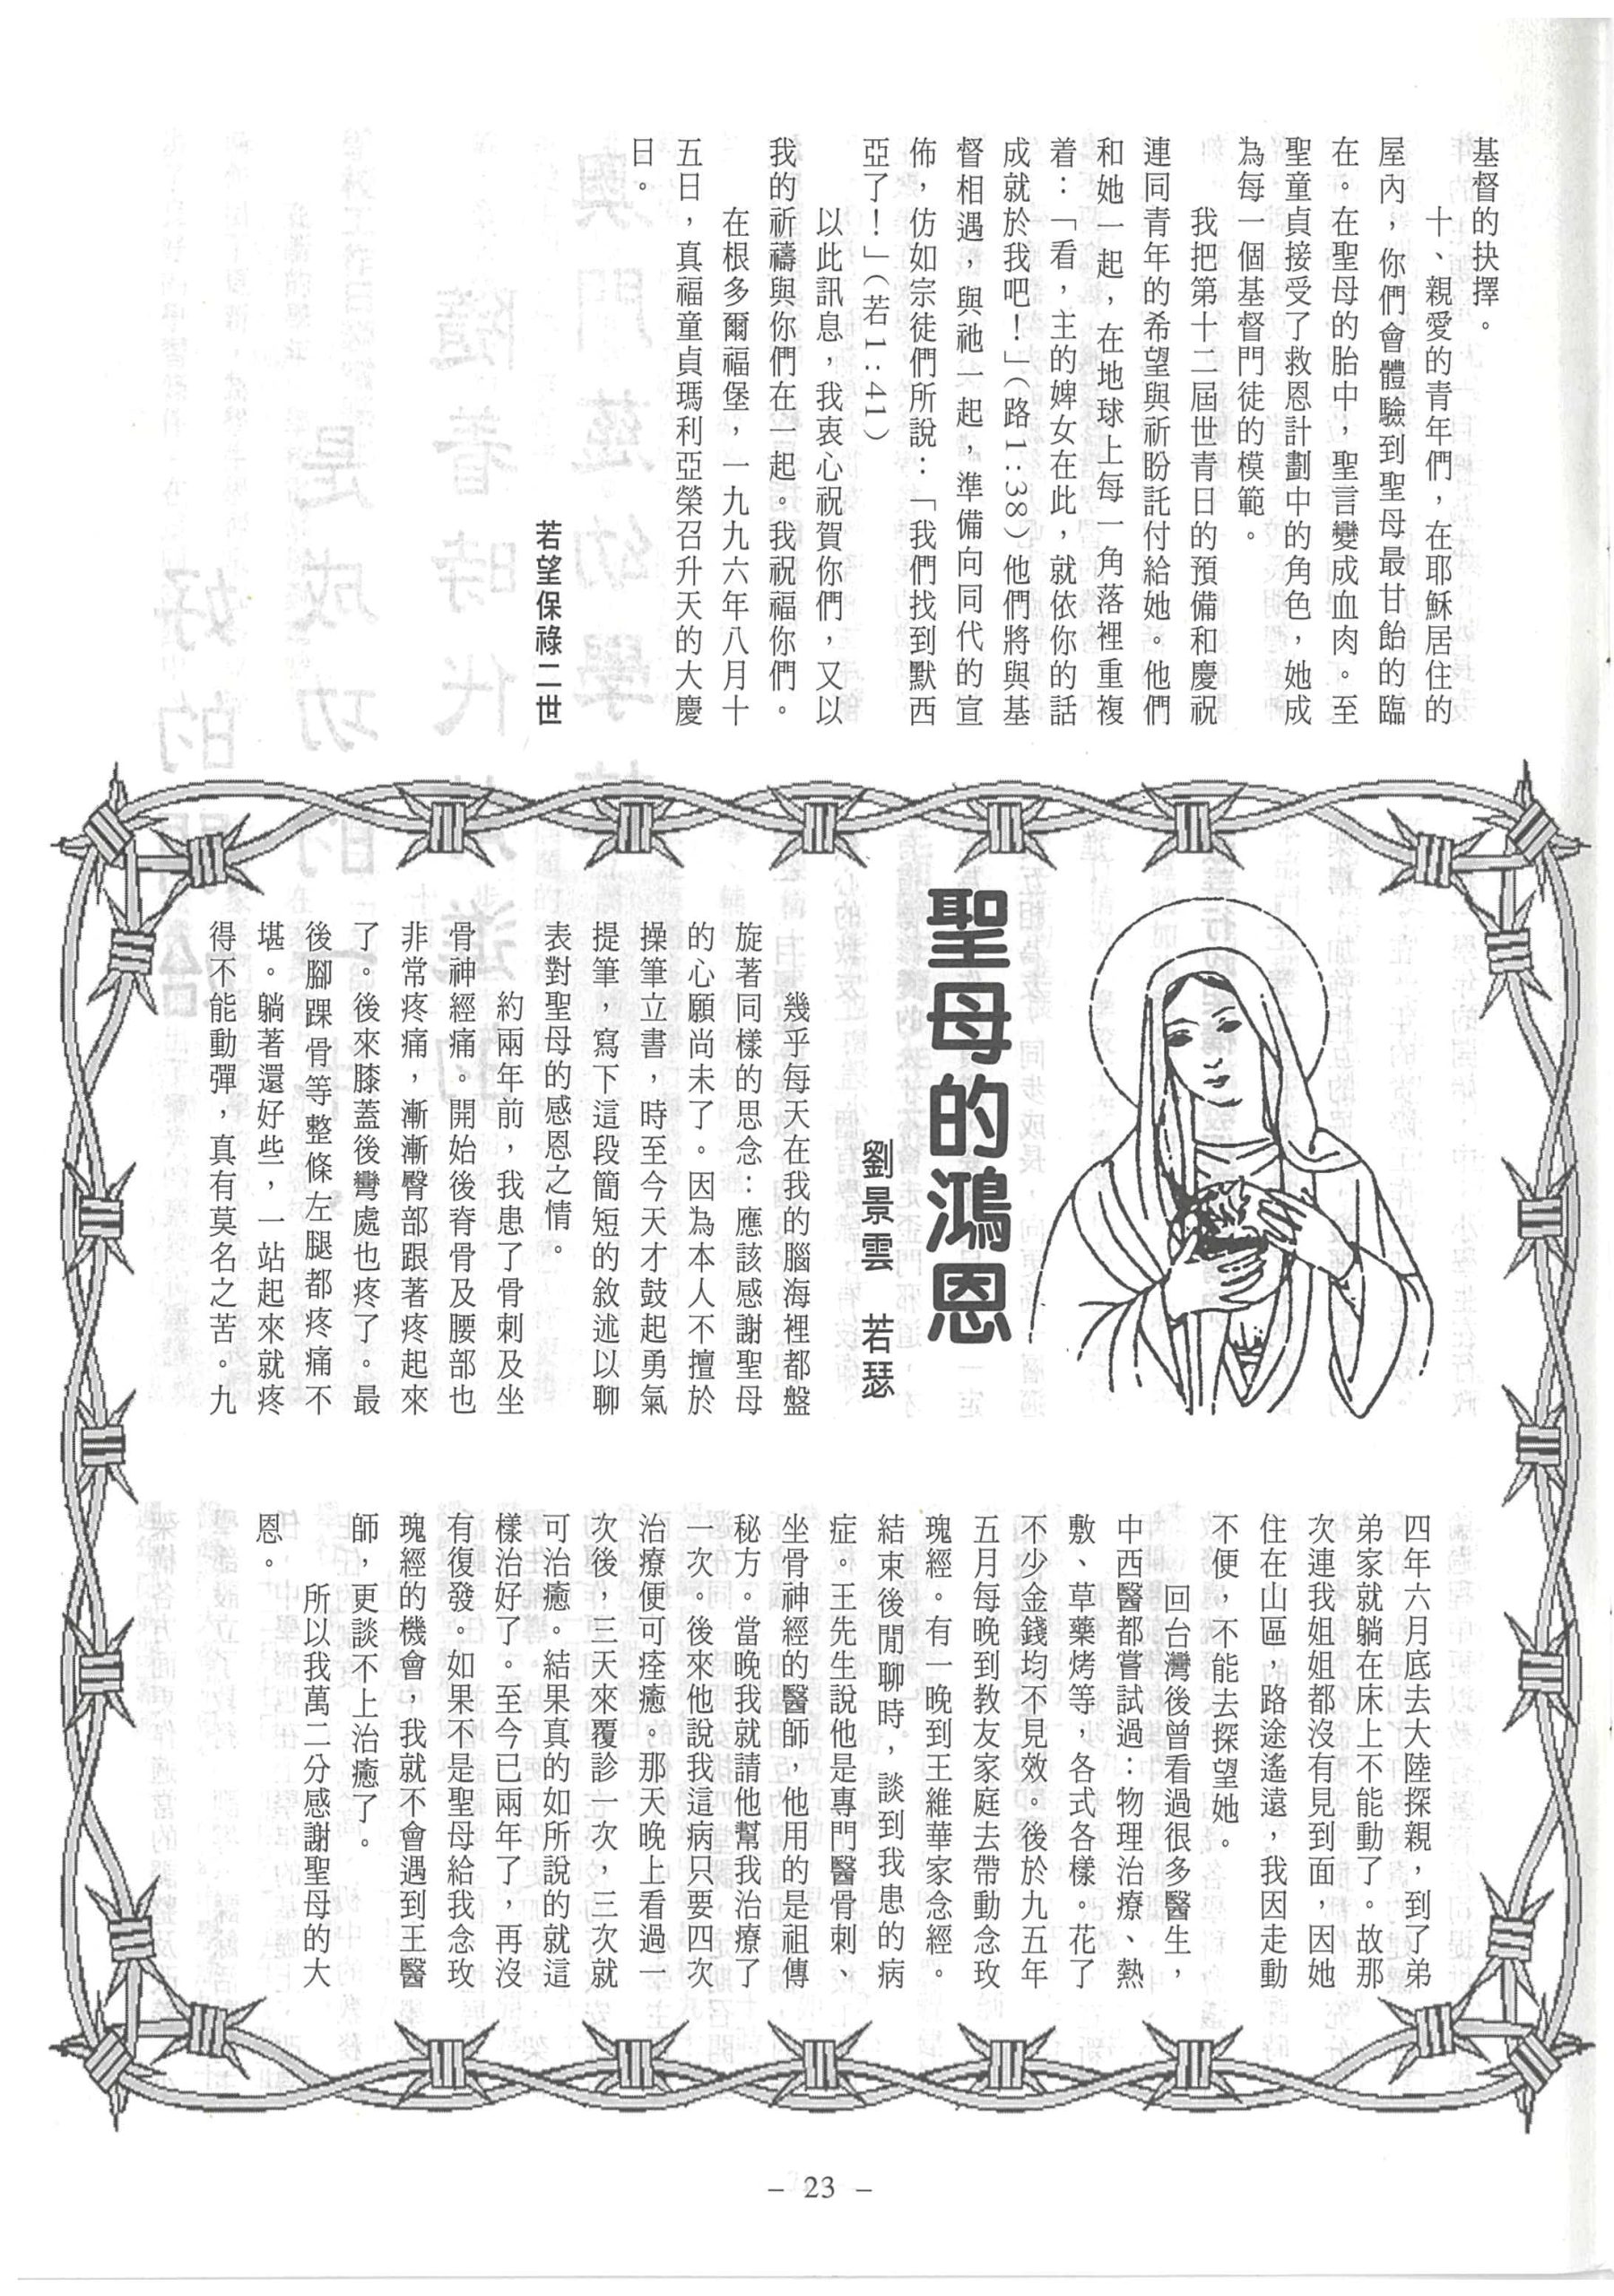 基督的抉擇。
十、親愛的青年們，在耶穌居住的
屋內，你們會體驗到聖母最甘飴的臨
在。在聖母的胎中，聖言變成血肉。至
聖童貞接受了救恩計劃中的角色，她成
為每一個基督門徒的模範。
我把第十二屆世青日的預備和慶祝
連同青年的希望與祈盼託付給她。他們
和她一起，在地球上每一角落裡重複
着：「看，主的婢女在此，就依你的話
成就於我吧！」（路1:38）他們將與基
督相遇，與祂一起，準備向同代的宣
佈，仿如宗徒們所說：「我們找到默西
亞了！」（若1:41）
以此訊息，我衷心祝賀你們，又以
我的祈禱與你們在一起。我祝福你們。
在根多爾福堡，一九九六年八月十
五日，真福童貞瑪利亞榮召升天的大慶
日。
若望保祿二世
聖母的鴻恩
劉景雲　若瑟
幾乎每天在我的腦海裡都盤
旋著同樣的思念：應該感謝聖母
的心願尚未了。因為本人不擅於
操筆立書，時至今天才鼓起勇氣
提筆，寫下這段簡短的敘述以聊
表對聖母的感恩之情。
約兩年前，我患了骨刺及坐
骨神經痛。開始後脊骨及腰部也
非常疼痛，漸漸臀部跟著疼起來
了。後來膝蓋後彎處也疼了。最
後腳踝骨等整條左腿都疼痛不
堪。躺著還好些，一站起來就疼
得不能動彈，真有莫名之苦。九
四年六月底去大陸探親，到了弟
弟家就躺在床上不能動了。故那
次連我姐姐都沒有見到面，因她
住在山區，路途遙遠，我因走動
不便，不能去探望她。
回台灣後曾看過很多醫生，
中西醫都嘗試過：物理治療、熱
敷、草藥烤等，各式各樣。花了
不少金錢均不見效。後於九五年
五月每晚到教友家庭去帶動念玫
瑰經。有一晚到王維華家念經。
結束後閒聊時，談到我患的病
症。王先生說他是專門醫骨刺、
坐骨神經的醫師，他用的是祖傳
秘方。當晚我就請他幫我治療了
一次。後來他說我這病只要四次
治療便可痊癒。那天晚上看過一
次後，三天來覆診一次，三次就
可治癒。結果真的如所說的就這
樣治好了。至今已兩年了，再沒
有復發。如果不是聖母給我念玫
瑰經的機會，我就不會遇到王醫
師，更談不上治癒了。
所以我萬二分感謝聖母的大
恩。
– 23 –